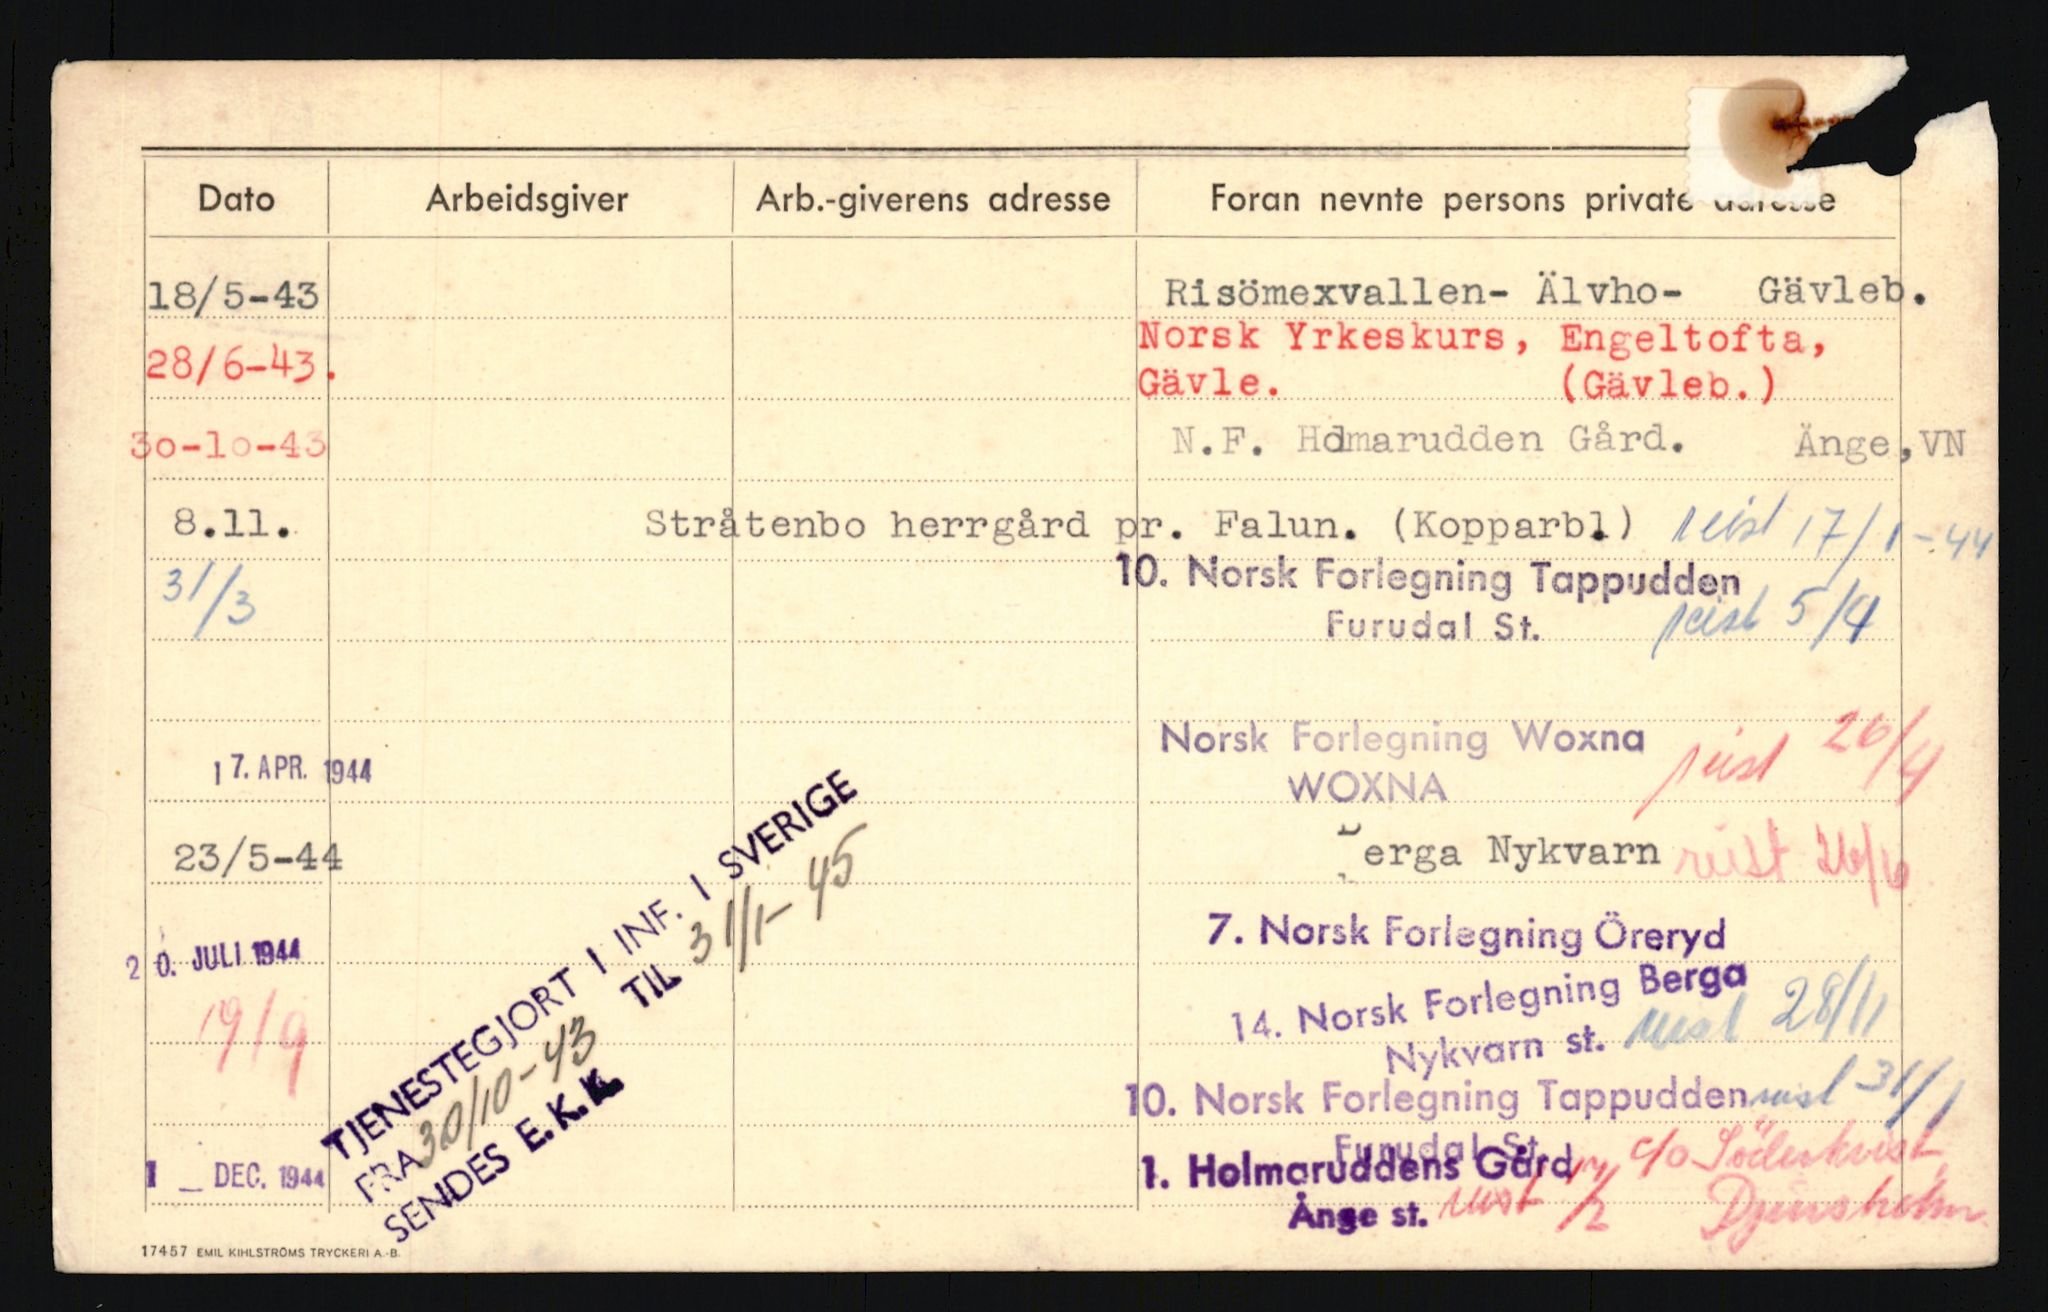 Dato Arbeidsgiver Arb.-giverens adresse Foran nevnte persons private adresse
18/5-43 Risömexvallen- Älvho- Gävleb.
28/6-43. Norsk Yrkeskurs, Engeltofta,
Gävle. (Gävleb.)
30-10-43 N.F. Holmarudden Gård. Änge,VN
8.11. Stråtenbo herrgård pr. Falun. (Kopparbl) reist 17/1-44
31/3 10. Norsk Forlegning Tappudden
Furudal St. reist 5/4
17. APR. 1944 Norsk Forlegning Woxna reist 26/4
WOXNA
23/5-44 Berga Nykvarn reist 26/6
20. JULI 1944 7. Norsk Forlegning Öreryd
19/9 14. Norsk Forlegning Berga
Nykvarn st. reist 28/11
10. Norsk Forlegning Tappudden reist 31/1
Furudal St.
1 _ DEC. 1944 1. Holmaruddens Gård
Ånge st. reist 17/2 c/o Söderkvist
Djursholm.
TJENESTEGJORT I INF. I SVERIGE
FRA 30/10-43 TIL 31/1-45
SENDES E.K.K.
17457 EMIL KIHLSTRÖMS TRYCKERI A.-B.